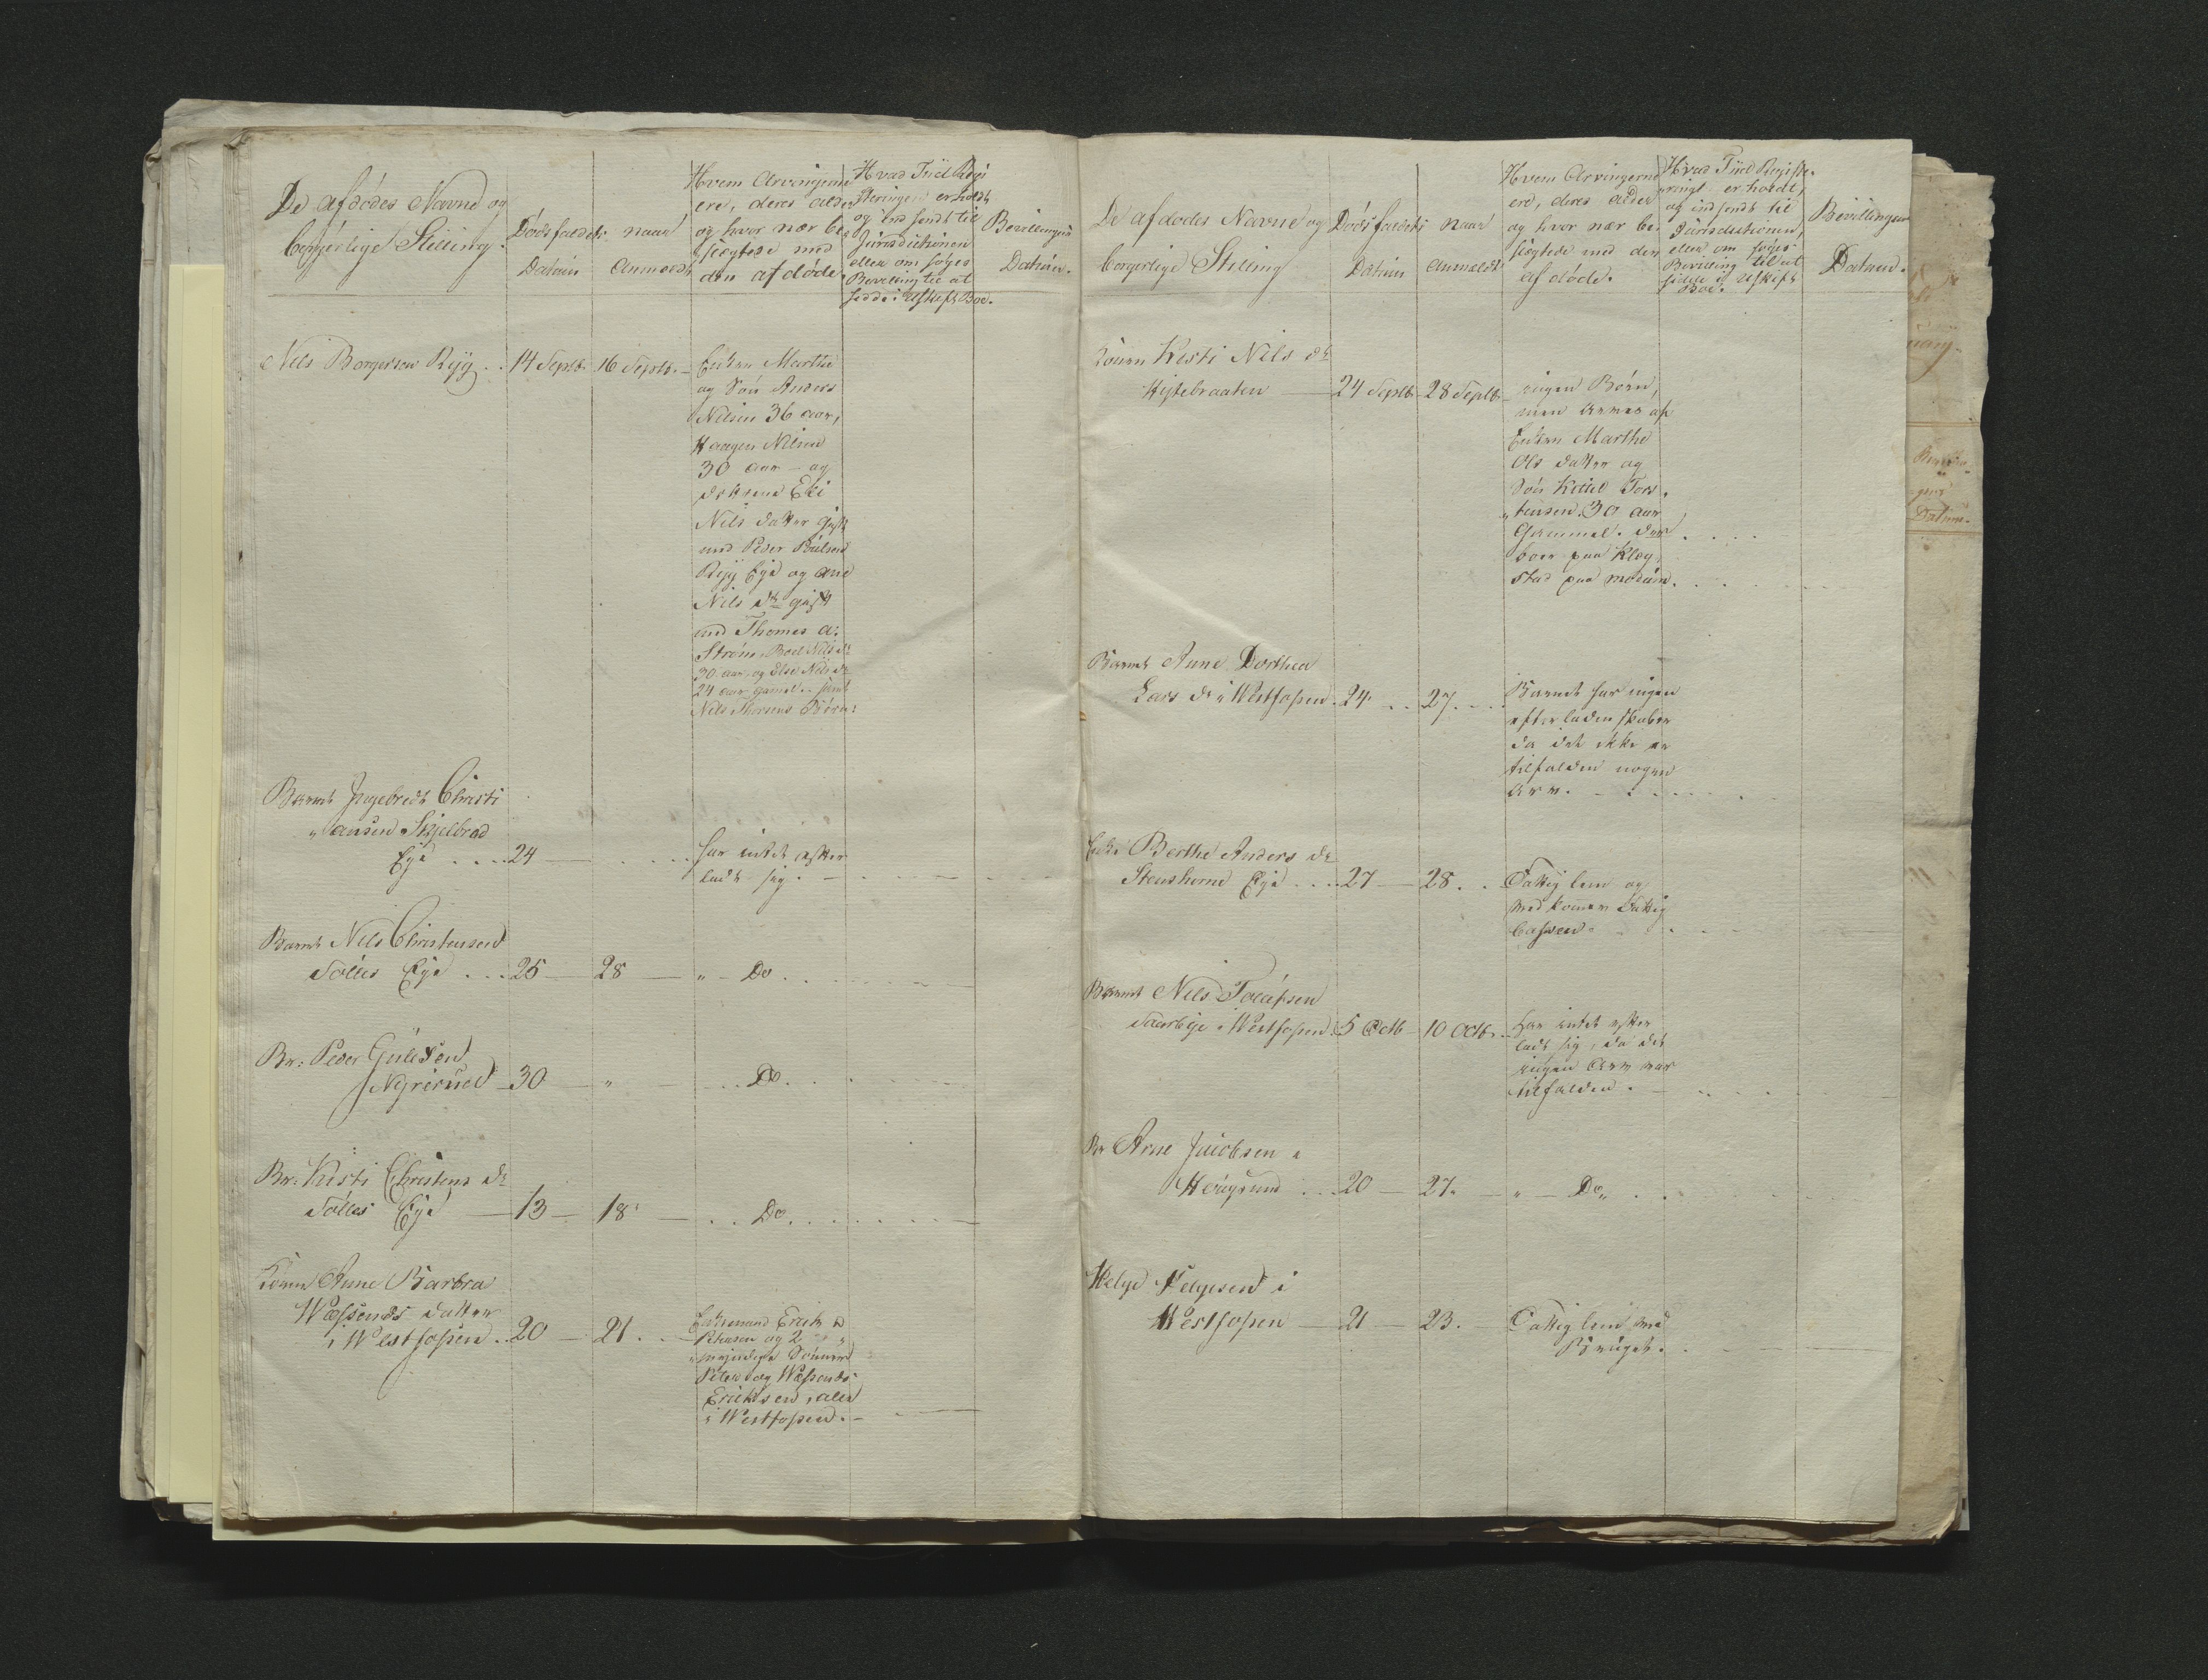 De afdödes Navne og
borgerlige Stilling.
Dödsfaldets
Datum
naar
Anmeldt
Hvem Arvingerne
ere, deres alder
og hvor nær be,
slægtede med
den afdöde.
Hvad Tiid Regi
steringen er holdt
og ind sendt til
Jurisdictionen
eller om søges
Bevilling til at
sidde i Uskift Boe.
Bevillingens
Datum.
Nels Borgersen Ryg . . 14 Septb. 16 Septb. –
Enken Marthe
og Søn Anders
Nilsen 36 aar,
Haagen Nilsen
30 aar – og
døttrene Eli
Nils datter gift
med Peder Poulsen
Ryg Eye og Ane
Nils dr. gift
med Thomas a:
Strøm, Boel Nils dr
30 aar, og Else Nils dr
24 aar gamel. samt
Nils Børn:
Barnet Ingebredt Christi
„ansen Skjelbred
Eye . . . . 24 — . . . . . har intet efter
ladt sig. –
Barnet Nels Christensen
Solles Eye . . . 25 — 28 — „ – Do .
Br: Peder Gulesen
Nyrerud – 30 — „ . . . Do .
Br: Kisti Christens dr
Solles Eye — 13 — 18 — . . Do .
Konen Anne Barbra
Wessends datter
i Westfossen . . 20 — 21 . . –
Enkemand Erich
og 2
myndige Sönner
Peter og Wessends
Erichsen, alle
i Westfossen. –
De afdødes Navne og
borgerlige Stilling
Dödsfaldets
Datum
Naar
anmeldt
Hvem Arvingerne
ere, deres alder
og hvor nær be,
slægtede med den
afdöde.
Hvad Tiid Registe„
ringt er holdt,
og indsendt til
Jurisdictionen,
eller om søges
Bevilling til at
sidde i Uskift
Boe.
Bevillingens
Datum.
Konen Kisti Nils dr
Hystebraaten — 24 Septb. – 28 Septb. –
ingen Børn,
men Arves af
Enken Marthe
Ols datter og
Søn Kittel Tors„
„tensen 30 aar
Gammel. der
boer paa Kløg„
stad paa Modum.
Barnet Anne Dorthea
Lars dr i Westfossen . 24. . . 27. . . .
Barnet har ingen
efterladenskaber
da det ikke er
tilfalden nogen
Arv. –
Enke Berthe Anders dr
Steushorne Eye . . . . 27 — 28. . .
Fattig lem og
vedkommer Fattig
Cassen
Barnet Nels Tolefsen
i Westfossen 5 Octb – 10 Octb. –
har intet efter
ladt sig, da det
ingen Arv var
tilfalden. –
Br Arne Jacobsen i
Hougsund . . . 20 — 27. — „ — Do „
Helge Helgesen i
Westfossen — 21 — 23. —
Fattig lem ved
Bruget.
Datum.